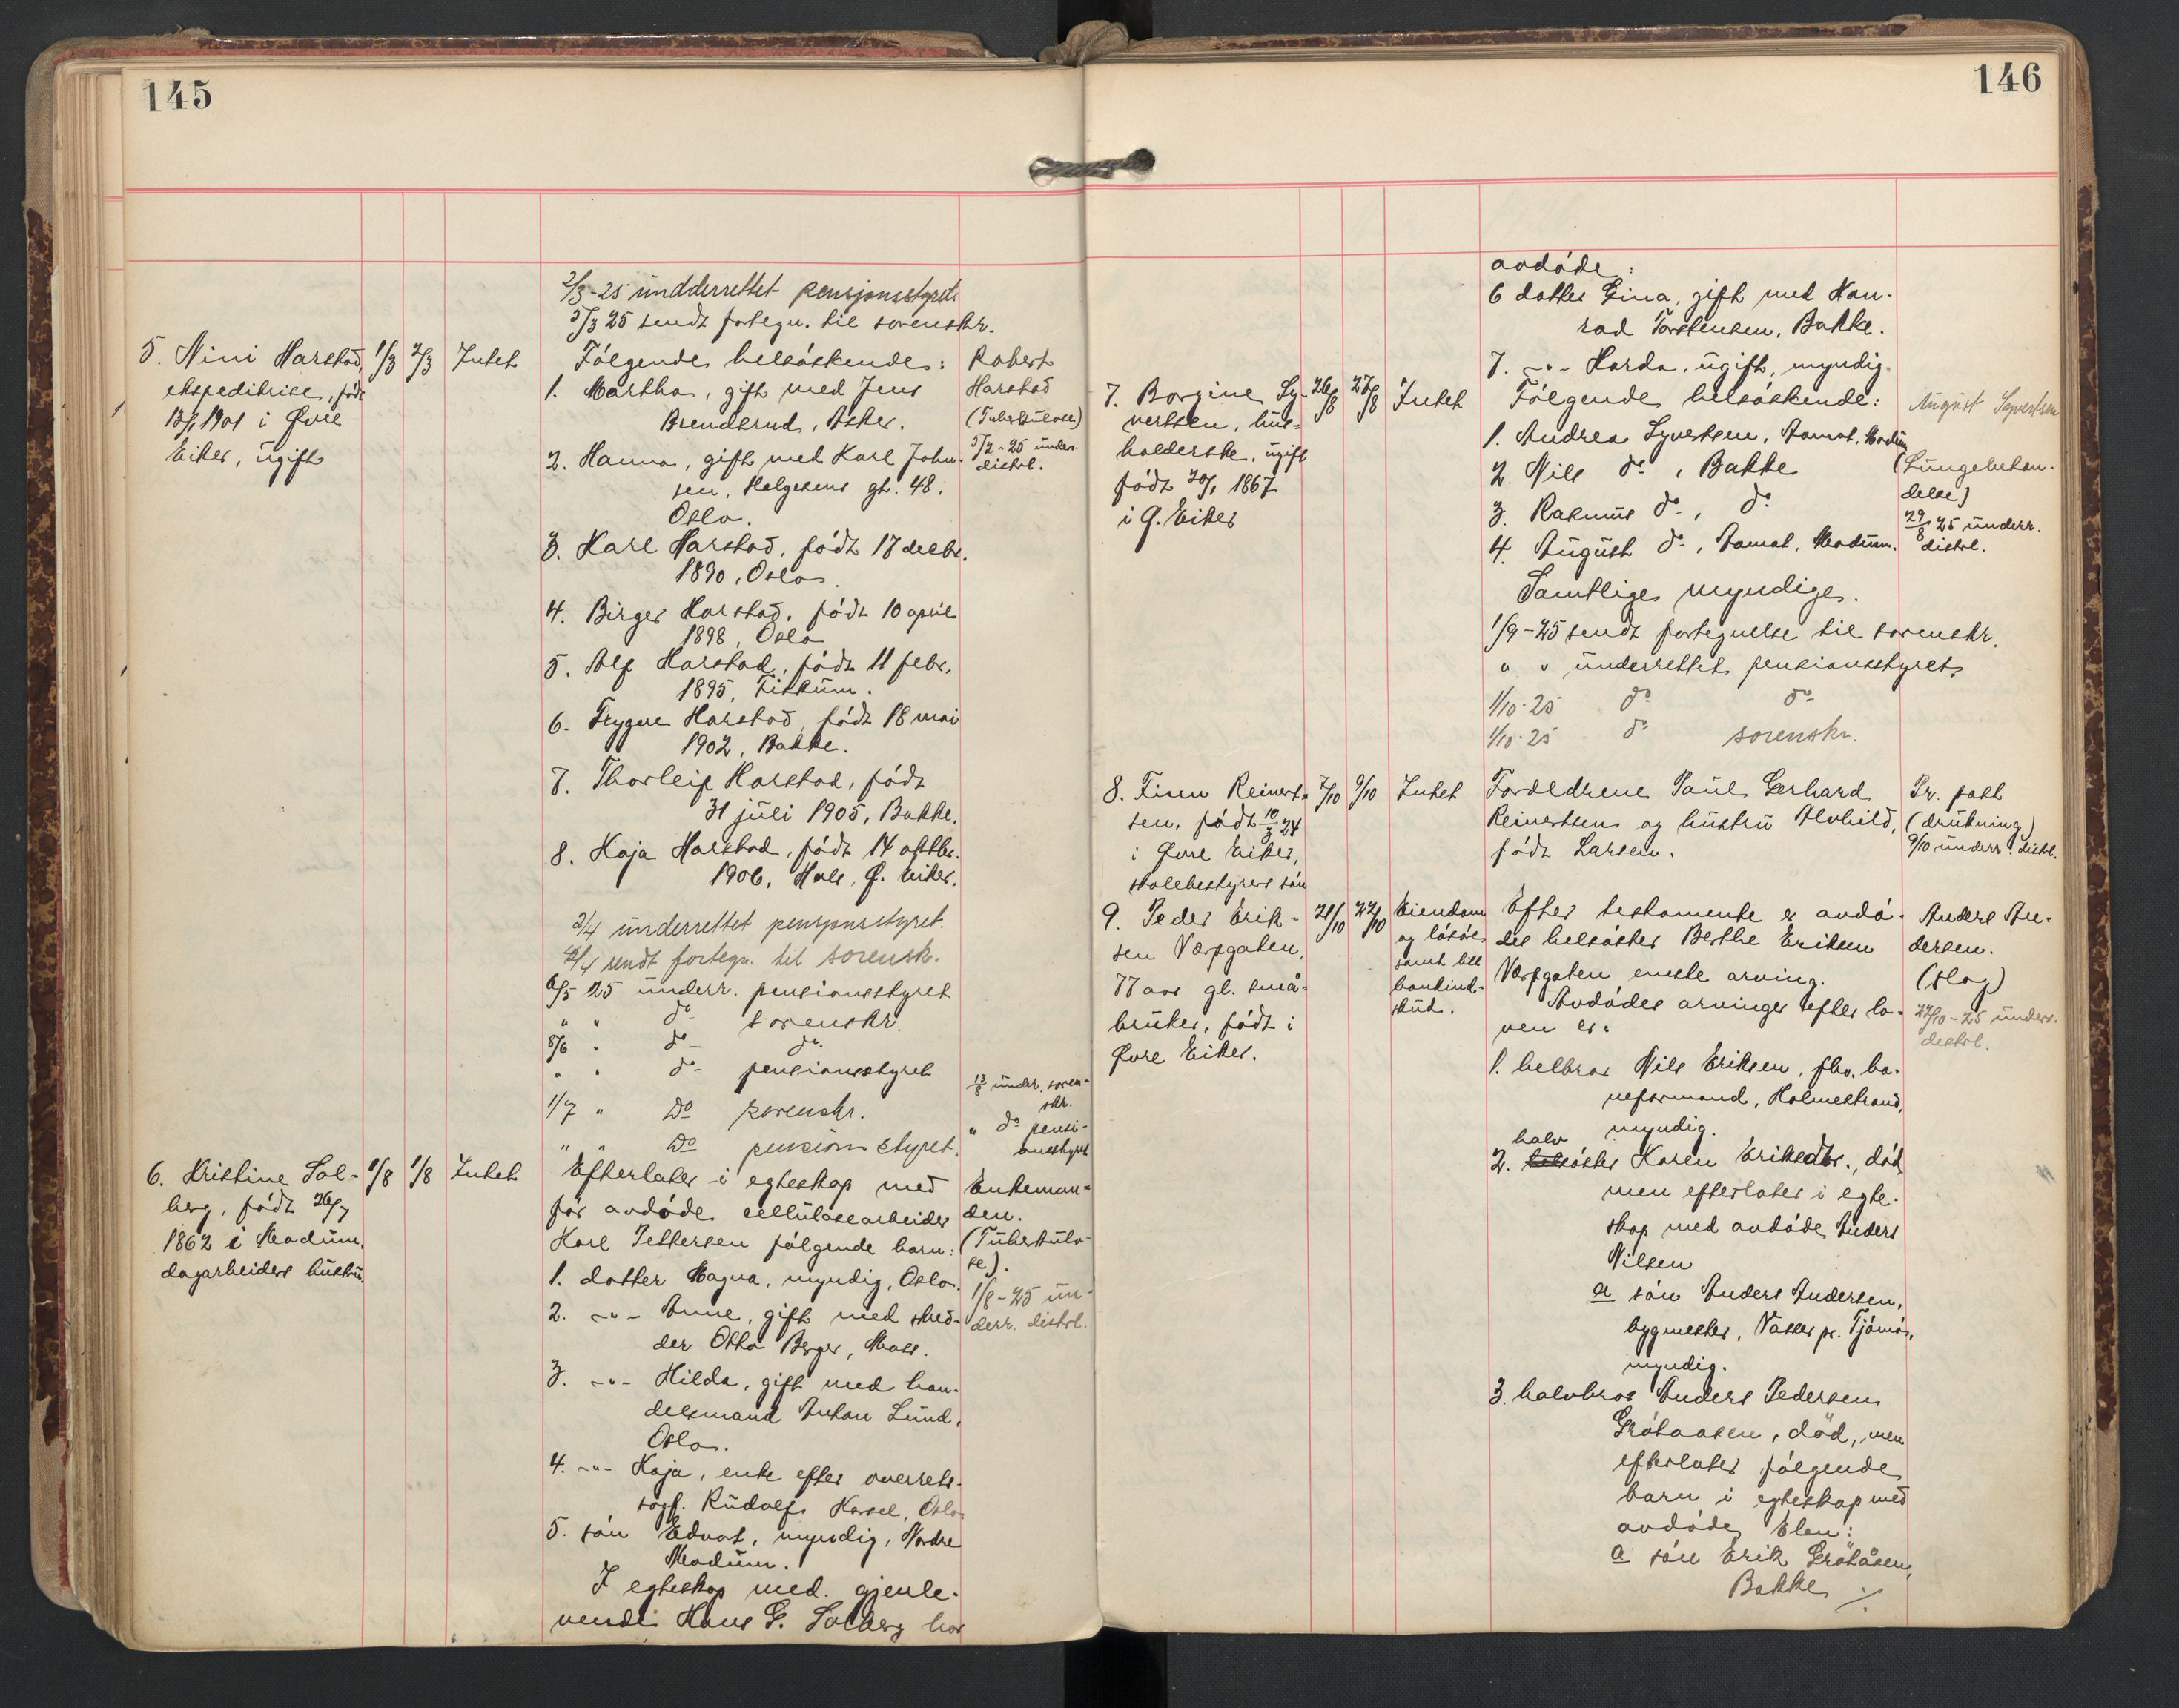 145
2/3-25 undderrettet pensjonsstyret.
3/3 25 sendt fortegn. til sorenskr.
5. Nini Harstad,
ekspeditrise, født
13/1 1901 i Øvre
Eiker, ugift
1/3
2/3
Intet
Følgende helsøskende:
1. Martha, gift med Jens
Brenderud, Asker.
2. Hanna, gift med Karl John-
sen, Helgesens gt. 48,
Oslo.
3. Karl Harstad, født 17 decbr.
1890, Oslo.
4. Birger Harstad, født 10 april
1898, Oslo
5. Alf Harstad, født 11 febr.
1895, Fiskum.
6. Trygve Harstad, født 18 mai
1902, Bakke.
7. Thorleif Harstad, født
31 juli 1905, Bakke.
8. Kaja Harstad, født 14 oktbr.
1906, Hals, Ø. Eiker.
2/4 underrettet pensjonsstyret.
4/4 sendt fortegn. til sorensk.
6/5 25 underr. pensionsstyret
" " do sorenskr.
5/6 " do do.
" " do pensionsstyret
1/7 " Do sorenskr.
" " Do pensionsstyret.
Robert
Harstad
(Tuberkulose)
3/2-25 under.
distrl.
13/8 under. soren-
skr.
" do pensi-
onsstyret
6. Kristine Sol-
berg, født 26/7
1862 i Modum,
dagarbeiders hustru.
1/8
1/8
Intet
Efterlater i egteskap med
før avdøde cellulosearbeider
Karl Pettersen følgende barn:
1. datter Magna, myndig, Oslo.
2. -"- Anne, gift med skred-
der Otto Berger, Moss.
3. -"- Hilda, gift med han-
delsmand Anton Lund,
Oslo.
4. -"- Kaja, enke efter overrets-
sagf. Rudolf Hassel, Oslo
5. søn Edvart, myndig, Nordre
Modum.
I egteskap med gjenle-
vende Hans G. Solberg har
Enkeman-
den.
(Tuberkulo-
se).
1/8-25 un-
derr. distrl.
146
avdøde:
6 datter Gina, gift med Kon-
rad Torstensen, Bakke.
7. -"- Harda, ugift, myndig.
7. Borgine Sy-
vertsen, hus-
holderske, ugift
født 20/1 1867
i Ø. Eiker
26/8
27/8
Intet
Følgende helsøskende:
1. Andrea Syvertsen, Aamot, Modum
2. Nils do, Bakke
3. Rasmus do, do
4. August do, Aamot, Modum.
Samtlige myndige.
1/9-25 sendt fortegnelse til sorenskr.
" " underrettet pensionsstyret.
1/10-25 do do
1/10-25 do sorenskr.
August Syvertsen
(Lungebeten-
delse)
29/8 25 underr.
distrl.
8. Finn Reinert-
sen, født 10/3 24
i Øvre Eiker,
skolebestyrers søn
7/10
9/10
Intet
Foreldrene Paul Gerhard
Reinertsen og hustru Alvhild,
født Larsen.
Pr. post
(drukning)
9/10 underr. distrl.
9. Peder Erik-
sen Værpgaten,
77 aar gl. små-
bruker, født i
Øvre Eiker.
21/10
22/10
Eiendom
og løsøre
samt litt
bankind-
skud.
Efter testamente er avdø-
des helsøster Berthe Eriksen
Værpgaten eneste arving.
Avdødes arvinger efter lo-
ven er:
1. helbror Nils Eriksen, fhv. ba-
neformand, Holmestrand,
myndig.
halv
2. helsøster Karen Eriksdtr., død
men efterlater i egte-
skap med avdøde Anders
Nilsen
a søn Anders Andersen,
bygmester, Vasser pr. Tjømø,
myndig.
3. halvbror Anders Pedersen
Gråtaasen, død, men
efterlater følgende
barn i egteskap med
avdøde Elen:
a søn Erik Gråtåsen,
Bakke ⁒
Anders An-
dersen.
(slag)
22/10-25 underr.
distrl.